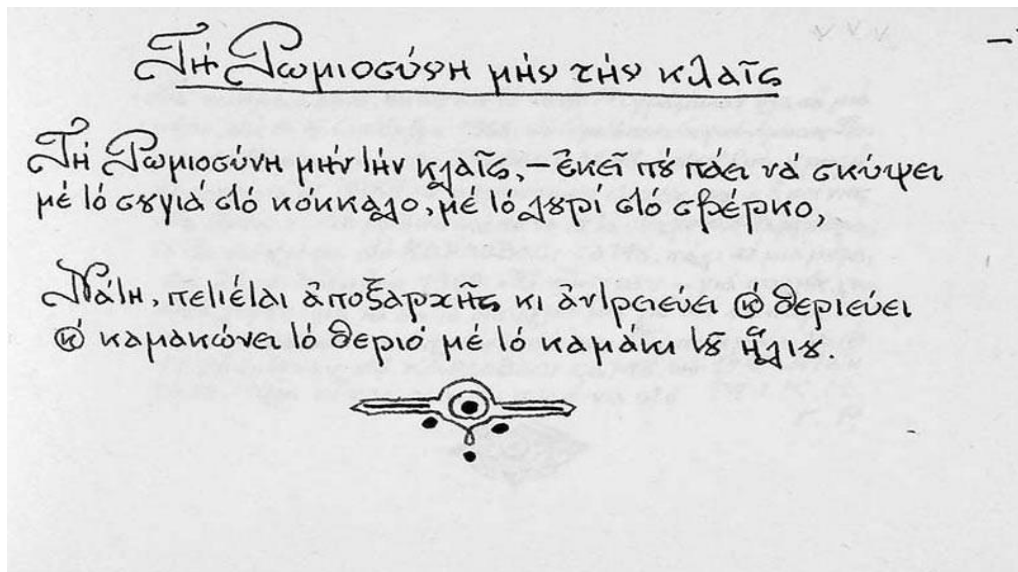 Τή Ρωμιοσύνη μήν τήν κλαῖς
Τή Ρωμιοσύνη μήν τήν κλαῖς, – ἐκεῖ πού πάει νά σκύψει
μέ τό σουγιά στό κόκκαλο, μέ τό λουρί στό σβέρκο,
Νάτη, πετιέται ἀποξαρχῆς κι ἀντρειεύει καί θεριεύει
καί καμακώνει τό θεριό μέ τό καμάκι τοῦ ἥλιου.